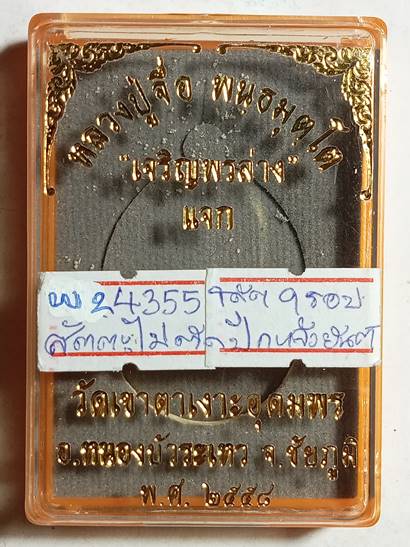 หลวงปู่จื่อ พนฺธมุตฺโต
"เจริญพรล่าง"
แจก
พ2 4355 รหัส 9 รอบ
สัตตะไม่ตัดปีกหลังยันต์
วัดเขาตาเงาะอุดมพร
อ.หนองบัวระเหว จ.ชัยภูมิ
พ.ศ. ๒๕๕๘